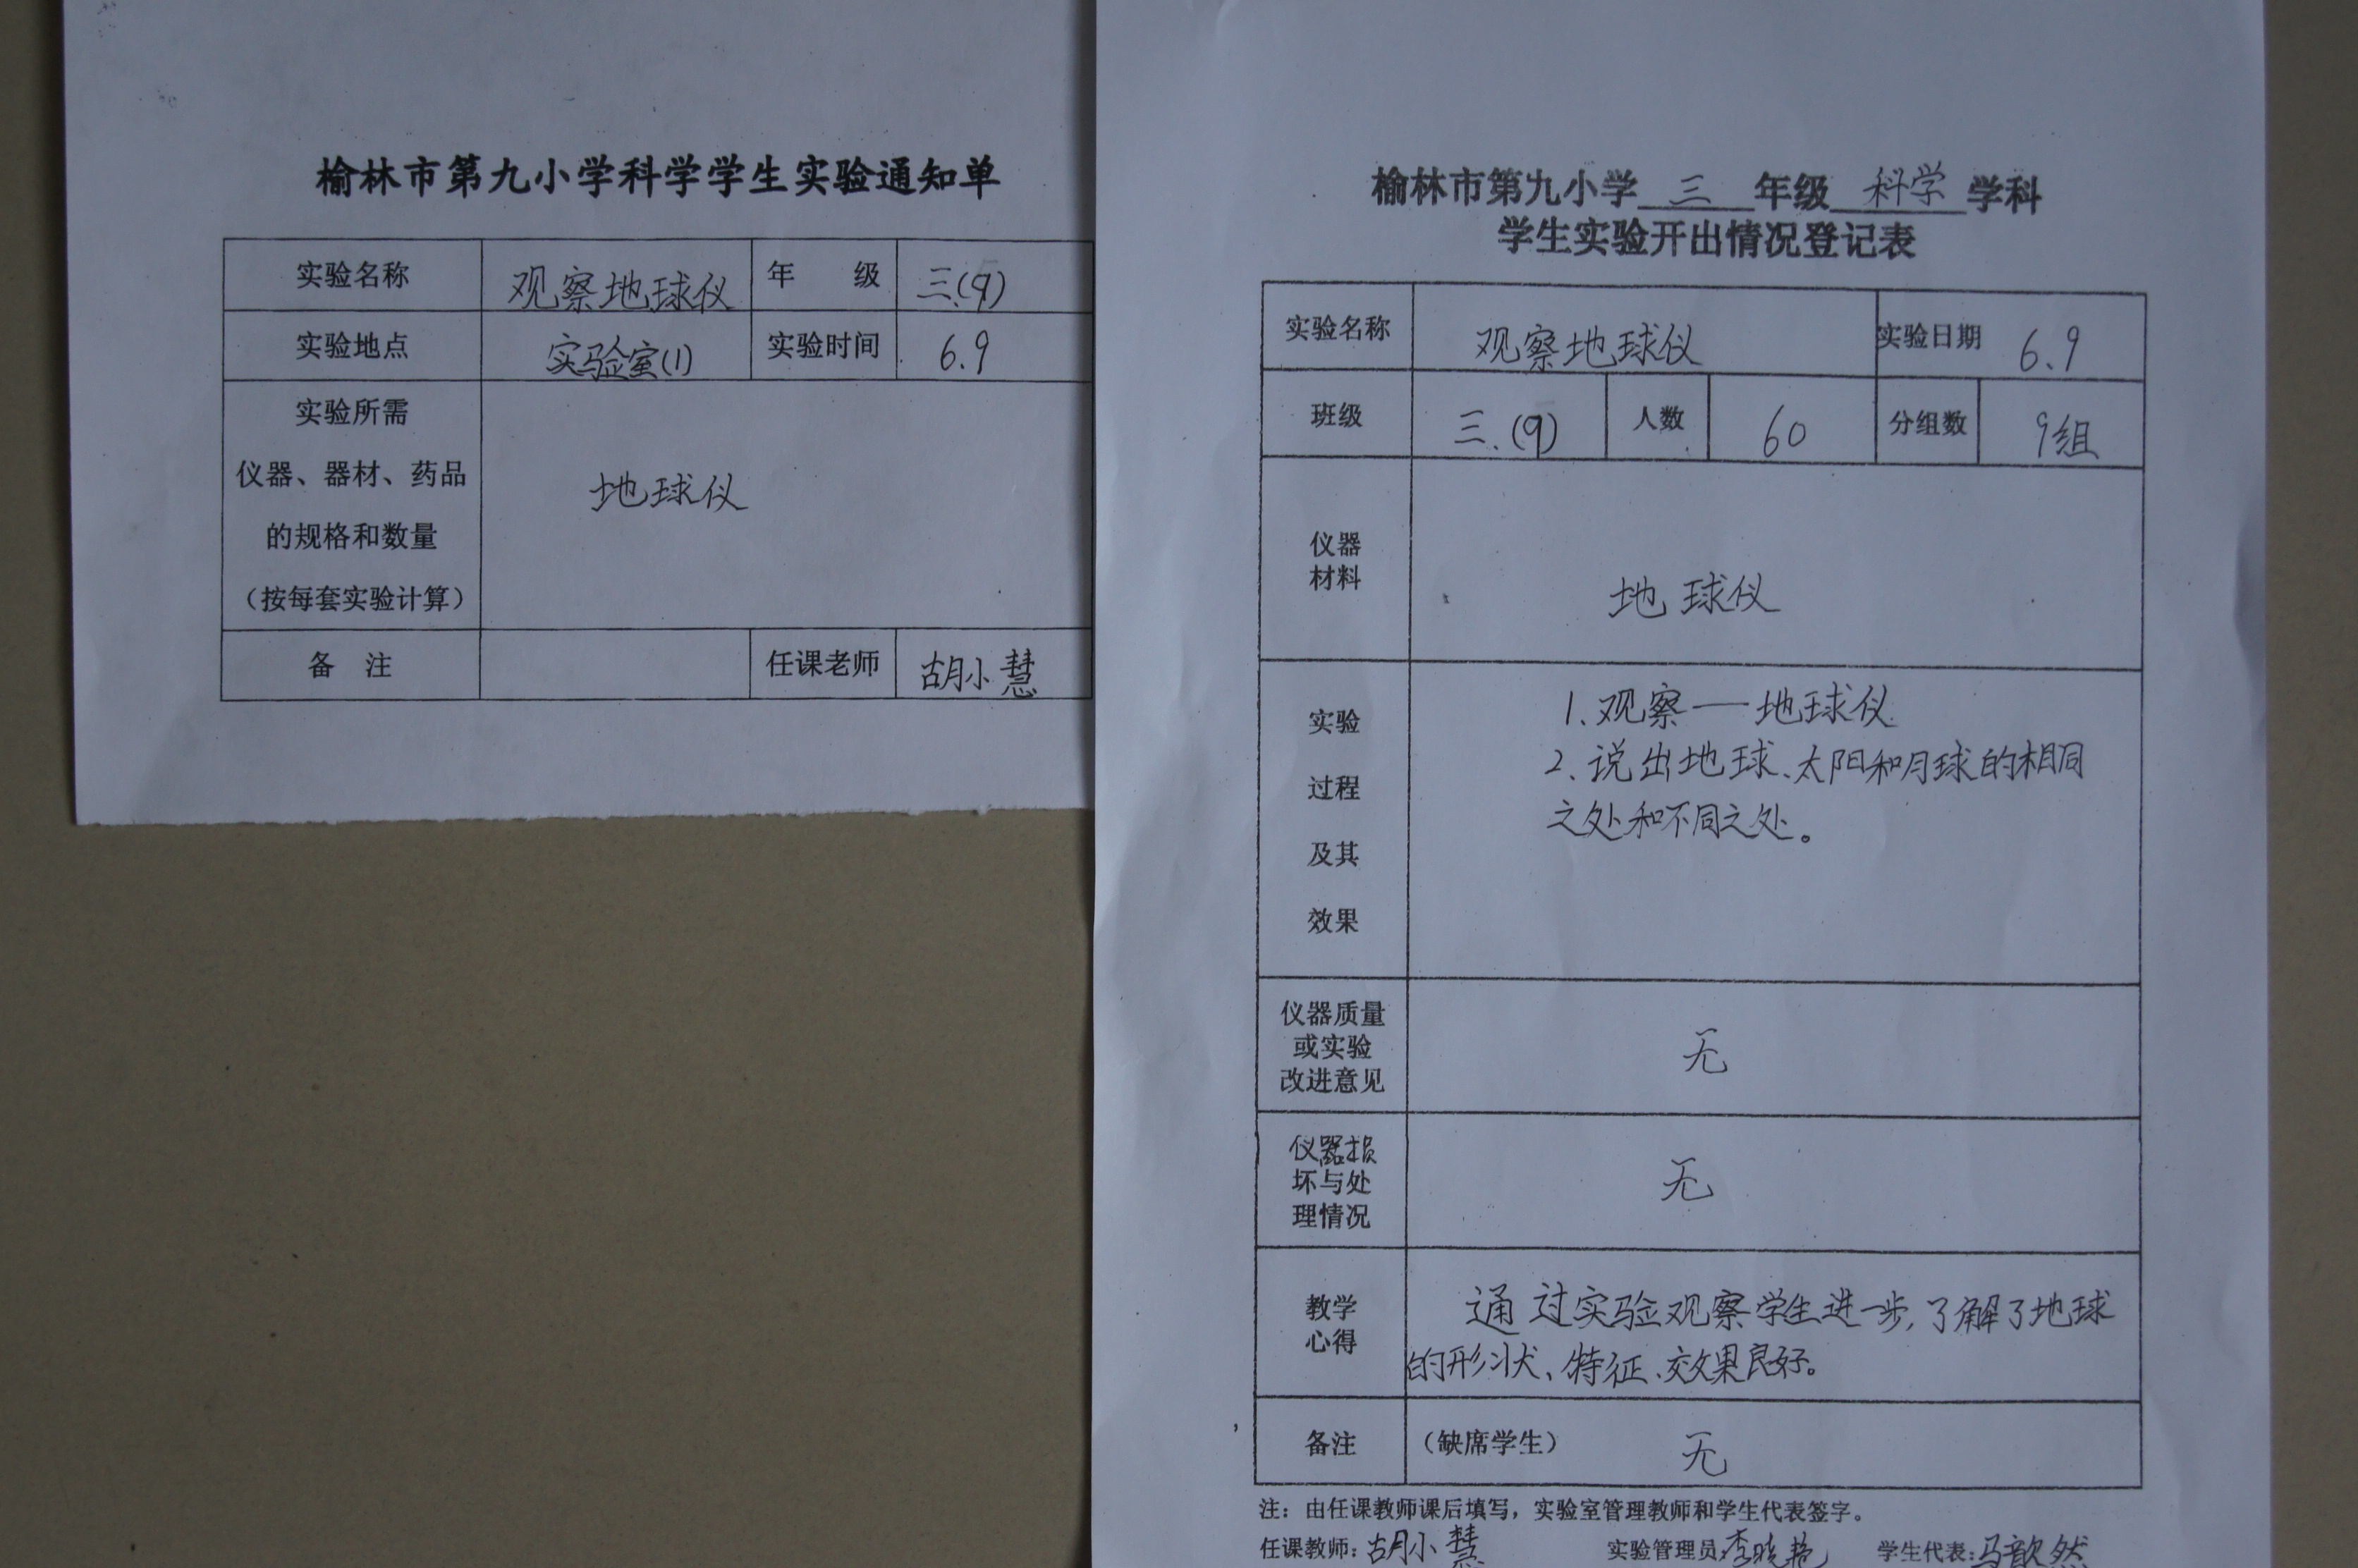 榆林市第九小学科学学生实验通知单
实验名称 观察地球仪 年 级 三.(9)
实验地点 实验室(1) 实验时间 6.9
实验所需
仪器、器材、药品
的规格和数量
（按每套实验计算）
地球仪
备 注 任课老师 胡小慧
榆林市第九小学 三 年级 科学 学科
学生实验开出情况登记表
实验名称 观察地球仪 实验日期 6.9
班级 三.(9) 人数 60 分组数 9组
仪器
材料
地球仪
实验
过程
及其
效果
1、观察——地球仪
2、说出地球、太阳和月球的相同
之处和不同之处。
仪器质量
或实验
改进意见
无
仪器损
坏与处
理情况
无
教学
心得
通过实验观察学生进一步,了解了地球
的形状、特征、效果良好。
备注 （缺席学生） 无
注：由任课教师课后填写，实验室管理教师和学生代表签字。
任课教师：胡小慧 实验管理员:李晓艳 学生代表:马歆然